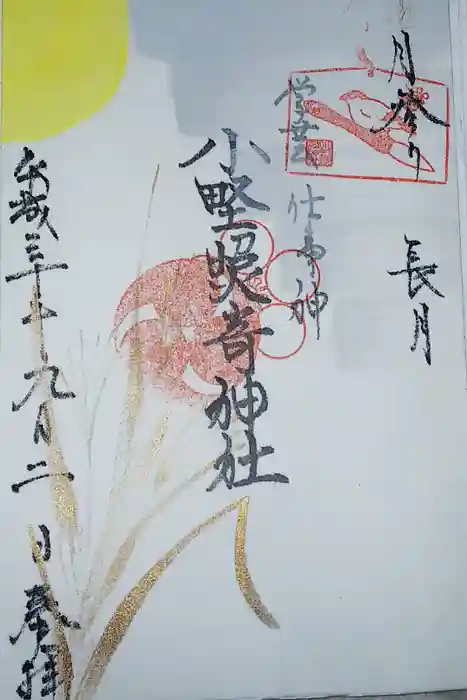 月参り
長月
仕事神
小野照崎神社
平成三十年九月二日 奉拝